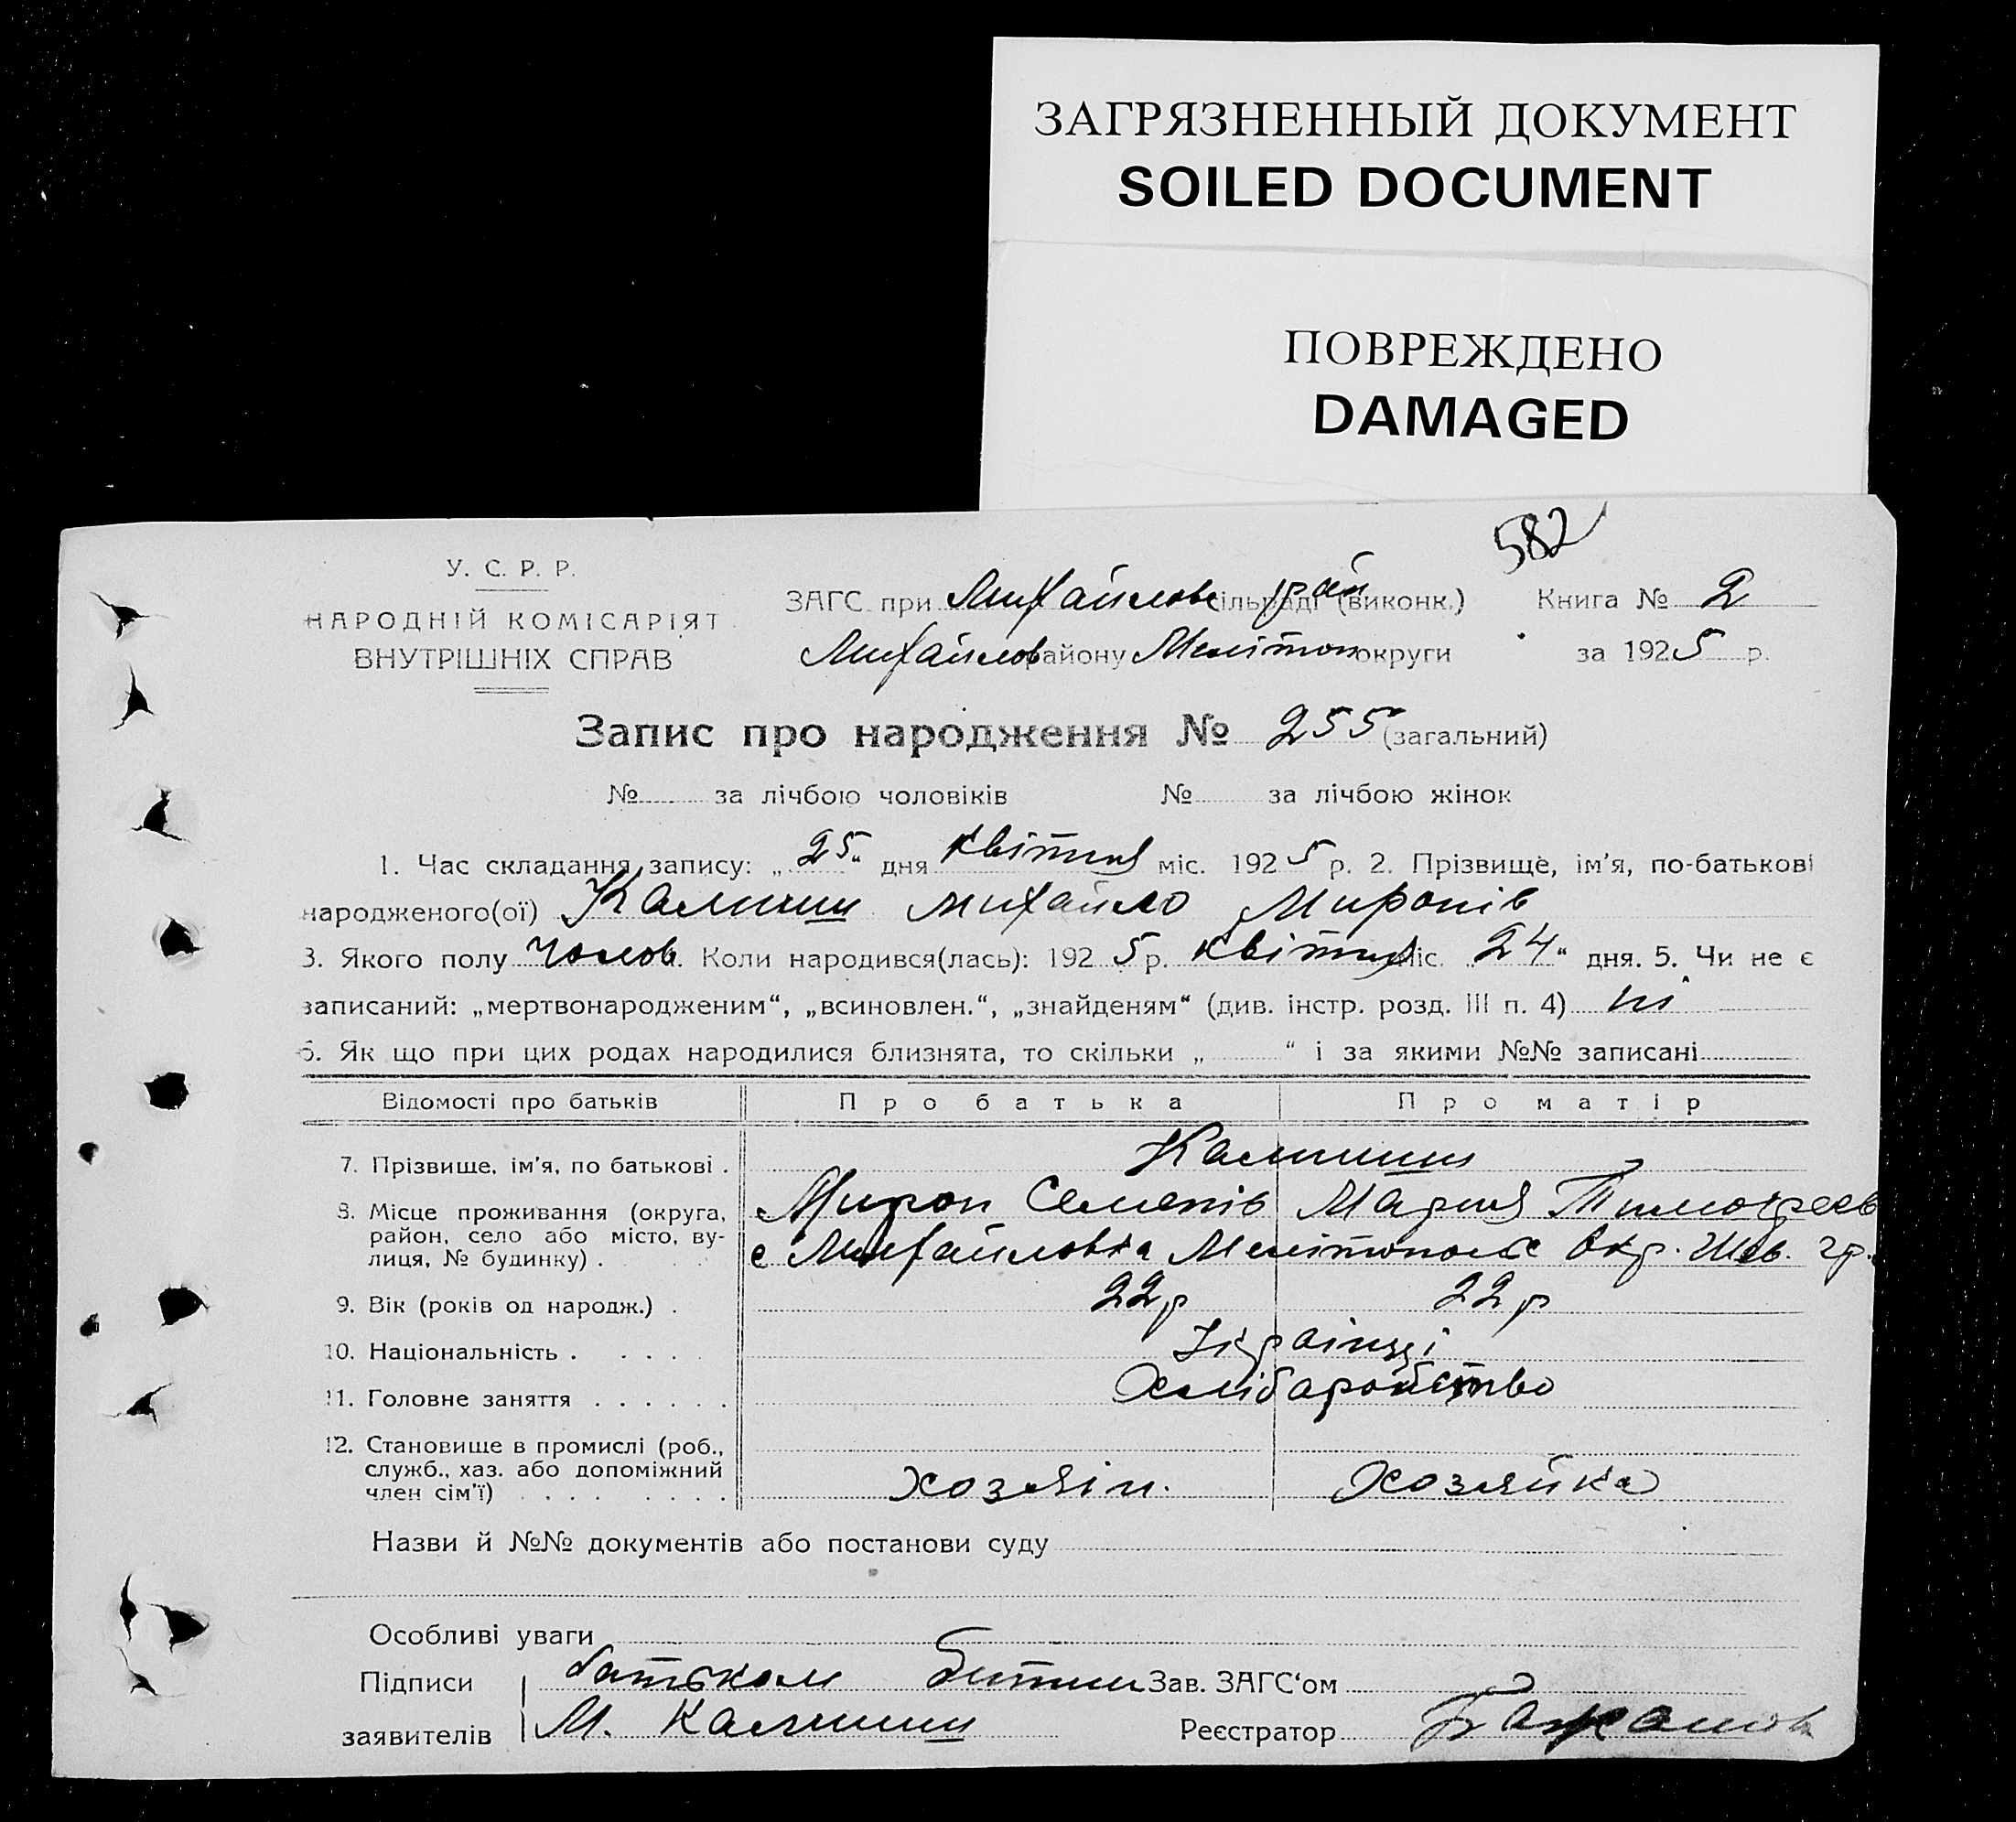 ЗАГРЯЗНЕННЫЙ ДОКУМЕНТ
SOILED DOCUMENT
ПОВРЕЖДЕНО
DAMAGED
582
У. С. Р. Р.
НАРОДНІЙ КОМІСАРІЯТ
ВНУТРІШНІХ СПРАВ
ЗАГС при Михайлов сільраді рай (виконк.) Книга № 2
Михайлов району Мелітоп округи за 1925 р.
Запис про народження № 255 (загальний)
№ за лічбою чоловіків № за лічбою жінок
1. Час складання запису: „25“ дня квітня міс. 1925 р. 2. Прізвище, ім'я, по-батькові
народженого(ої) Калинин Михайло Миронів
3. Якого полу чолов. Коли народився(лась): 1925 р. квітня міс. „24“ дня. 5. Чи не є
записаний: „мертвонародженим“, „всиновлен.“, „знайденям“ (див. інстр. розд. III п. 4) ні
6. Як що при цих родах народилися близнята, то скільки „ “ і за якими №№ записані
Відомості про батьків Про батька Про матір
7. Прізвище, ім'я, по батькові . Калинин
8. Місце проживання (округа, район, село або місто, вулиця, № будинку) . Мирон Семенів Мария Тимофеев
с Михайловка Мелітопольс Окр. Шев. гр.
9. Вік (років од народж.) . 22 р 22 р
10. Національність . . . . . Українці
11. Головне заняття . . . . . . Хлібаробство
12. Становище в промислі (роб.,
служб., хаз. або допоміжний
член сім'ї) . . . . . . . . хозяін. хозяйка
Назви й №№ документів або постанови суду
Особливі уваги
Підписи батьком Зав. ЗАГС‘ом
заявителів М. Калинин Реєстратор